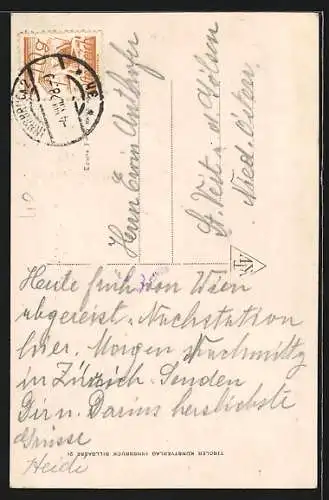 Herrn Erwin Anthofer
St. Veit a d Gölsen
Nied. Östen.
Heute früh von Wien
abgereist. Nachtstation
hier. Morgen Nachmittg
in Zürich. Senden
Dir u. Darius herzlichste
Grüsse
Heidi
TIROLER KUNSTVERLAG INNSBRUCK SILLGASSE 21
INNSBRUCK